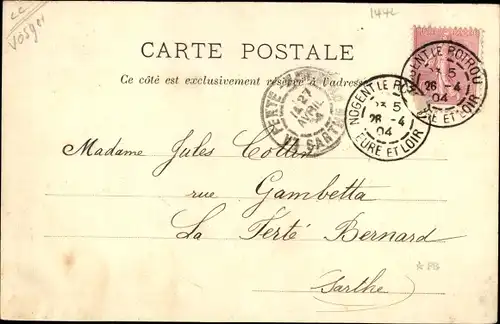 Vosges
1442
CARTE POSTALE
Ce côté est exclusivement réservé à l'adresse
NOGENT LE ROTROU
26 - 4
04
EURE ET LOIR
NOGENT LE ROTROU
26 - 4
04
EURE ET LOIR
27
AVRIL
SARTHE
Madame Jules Collin
rue Gambetta
La Ferté Bernard
Sarthe
* PB